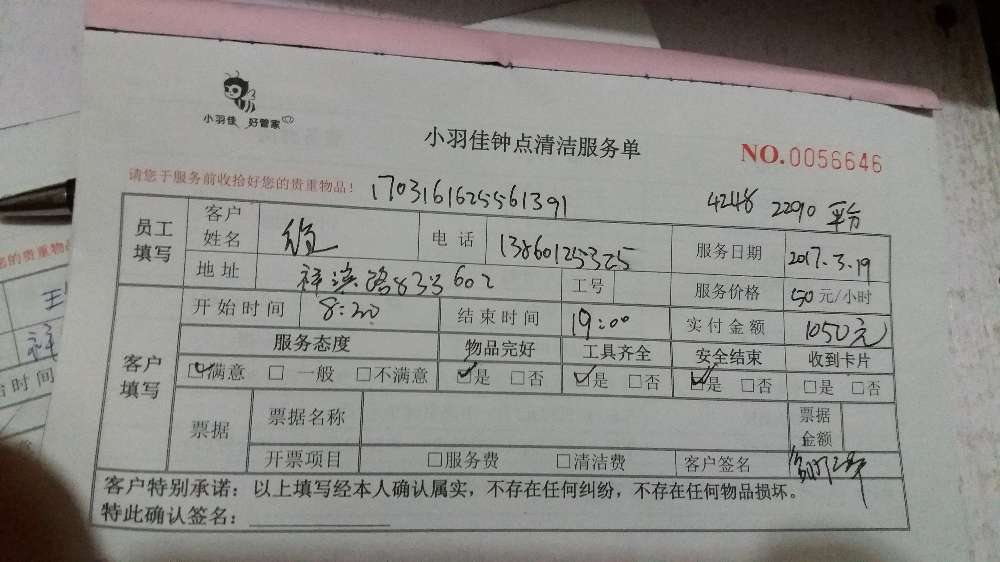 小羽佳 好管家
小羽佳钟点清洁服务单
NO.0056646
请您于服务前收拾好您的贵重物品！
1703161625561391
4248 2290 平台
员工填写
客户姓名
电话 13860125325
服务日期 2017.3.19
地址 833 602
工号
服务价格 50 元/小时
客户填写
开始时间 8:20
结束时间 19:00
实付金额 1050元
服务态度 物品完好 工具齐全 安全结束 收到卡片
☑满意 □ 一般 □不满意 ☑是 □否 ☑是 □否 ☑是 □否 □是 □否
票据
票据名称
票据金额
开票项目 □服务费 □清洁费 客户签名
客户特别承诺：以上填写经本人确认属实，不存在任何纠纷，不存在任何物品损坏。
特此确认签名：
的贵重物品
王
祥
台时间